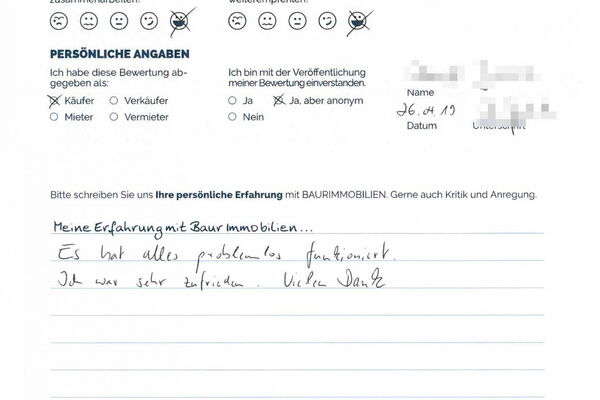 zusammenarbeiten?
weiterempfehlen?
PERSÖNLICHE ANGABEN
Ich habe diese Bewertung ab-
gegeben als:
Käufer
Verkäufer
Mieter
Vermieter
Ich bin mit der Veröffentlichung
meiner Bewertung einverstanden.
Ja
Ja, aber anonym
Nein
Name
26.04.19
Datum
Unterschrift
Bitte schreiben Sie uns Ihre persönliche Erfahrung mit BAURIMMOBILIEN. Gerne auch Kritik und Anregung.
Meine Erfahrung mit Baur Immobilien...
Es hat alles problemlos funktioniert.
Ich war sehr zufrieden. Vielen Dank